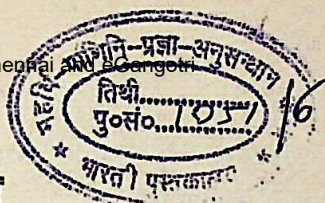 ennai and eGangotri
महर्षि पाणिनि-प्रज्ञा-अनुसन्धान
तिथी..............
पु०सं०..1051../6
भारती पुस्तकालय